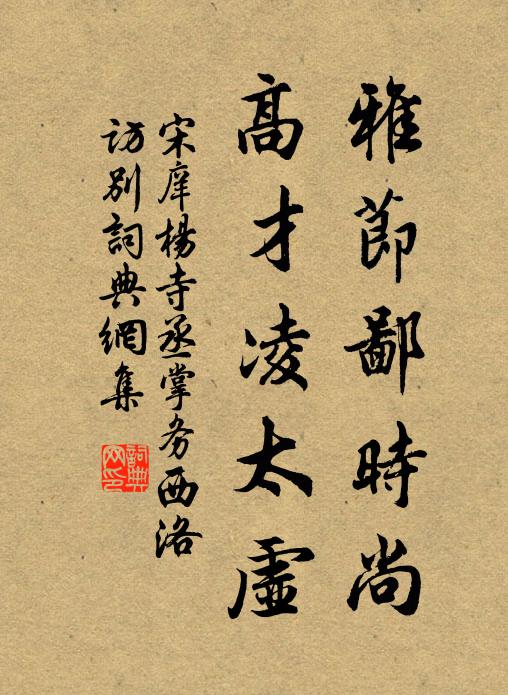 雅節鄙時尚
高才凌太虛
宋庠楊寺丞掌务西洛
访别詞典網集
詞典網印